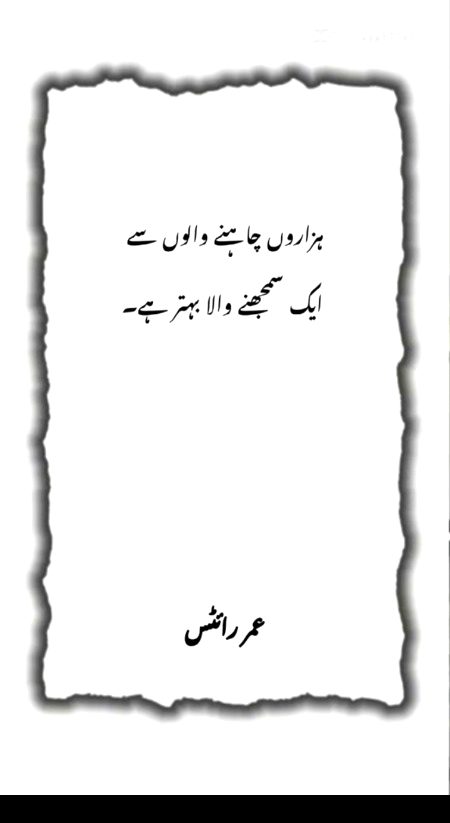 ہزاروں چاہنے والوں سے
ایک سمجھنے والا بہتر ہے۔
عمر رائٹس